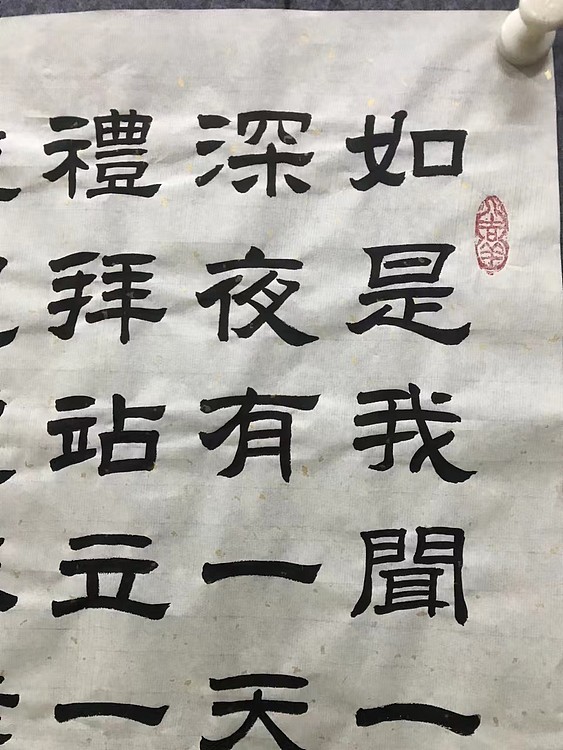 如是我聞一
深夜有一天
禮拜站立一